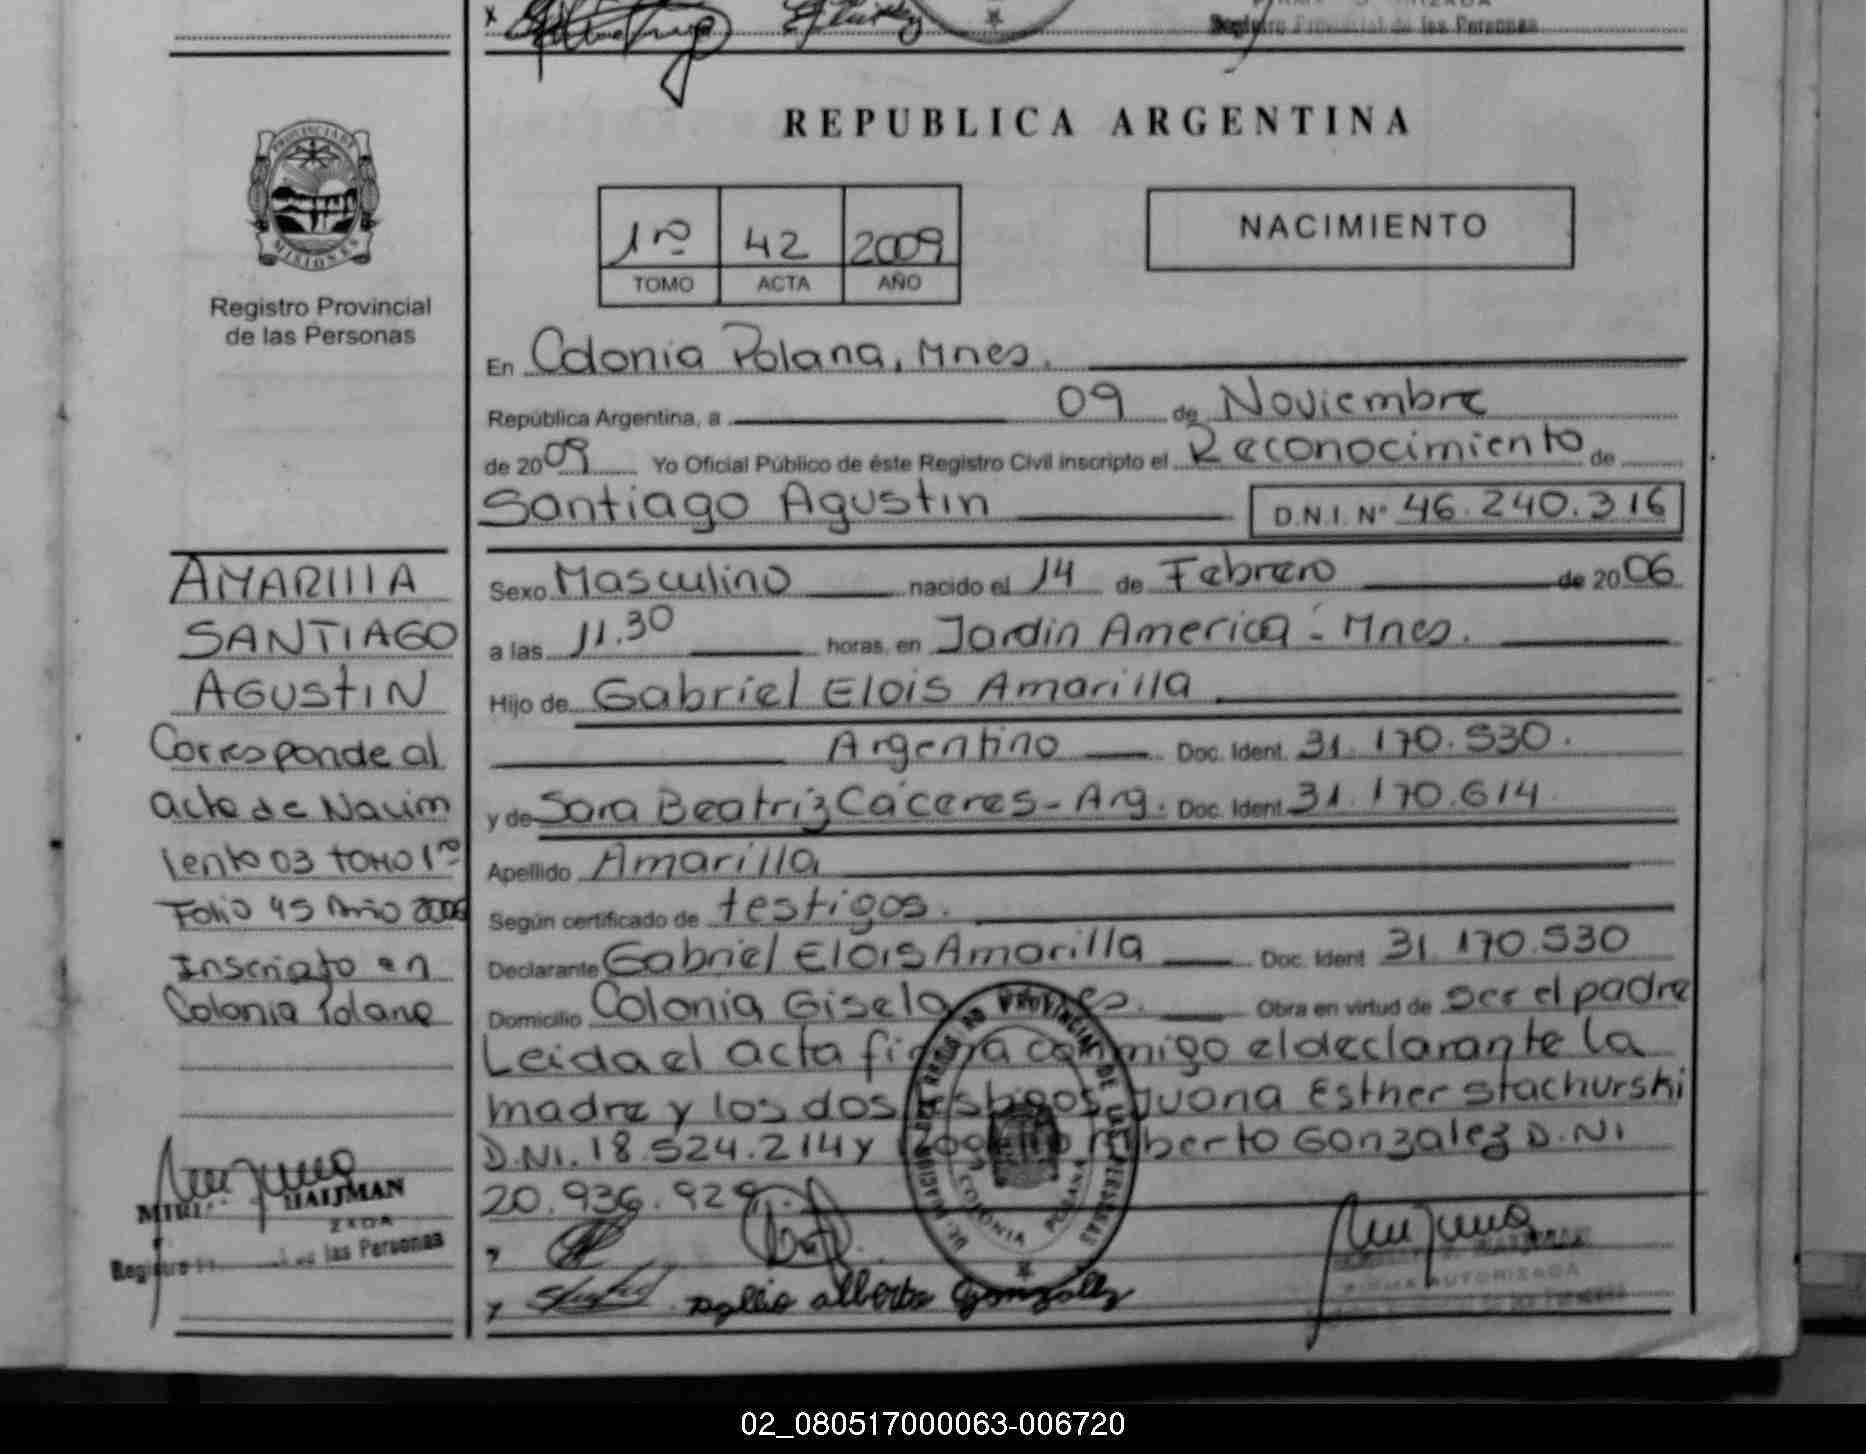 Registro Provincial de las Personas
REPUBLICA ARGENTINA
PROVINCIA DE
MISIONES
Registro Provincial
de las Personas
1ro 42 2009
TOMO ACTA AÑO
NACIMIENTO
En Colonia Polana, Mnes.
República Argentina, a 09 de Noviembre
de 2009 Yo Oficial Público de éste Registro Civil inscripto el Reconocimiento de
Santiago Agustin D.N.I. Nº 46.240.316
Sexo Masculino nacido el 14 de Febrero de 2006
a las 11.30 horas, en Jardin America - Mnes.
Hijo de Gabriel Elois Amarilla
Argentino Doc. Ident. 31.170.530.
y de Sara Beatriz Cáceres - Arg. Doc. Ident. 31.170.614
Apellido Amarilla
Según certificado de testigos.
Declarante Gabriel Elois Amarilla Doc. Ident 31.170.530
Domicilio Colonia Gisela Obra en virtud de ser el padre
Leida el acta firma conmigo el declarante la
madre y los dos testigos Juana Esther Stachurski
D.NI. 18.524.214 y Alberto Gonzalez D.NI
20.936.929.
AMARILLA
SANTIAGO
AGUSTIN
Corresponde al
acta de Nacim
iento 03 TOMO 1ro
Folio 45 Año 2006
Inscripto en
Colonia Polana
HAIJMAN
las Personas
COLONIA POLANA
alberto Gonzalez
FIRMA AUTORIZADA
02_080517000063-006720